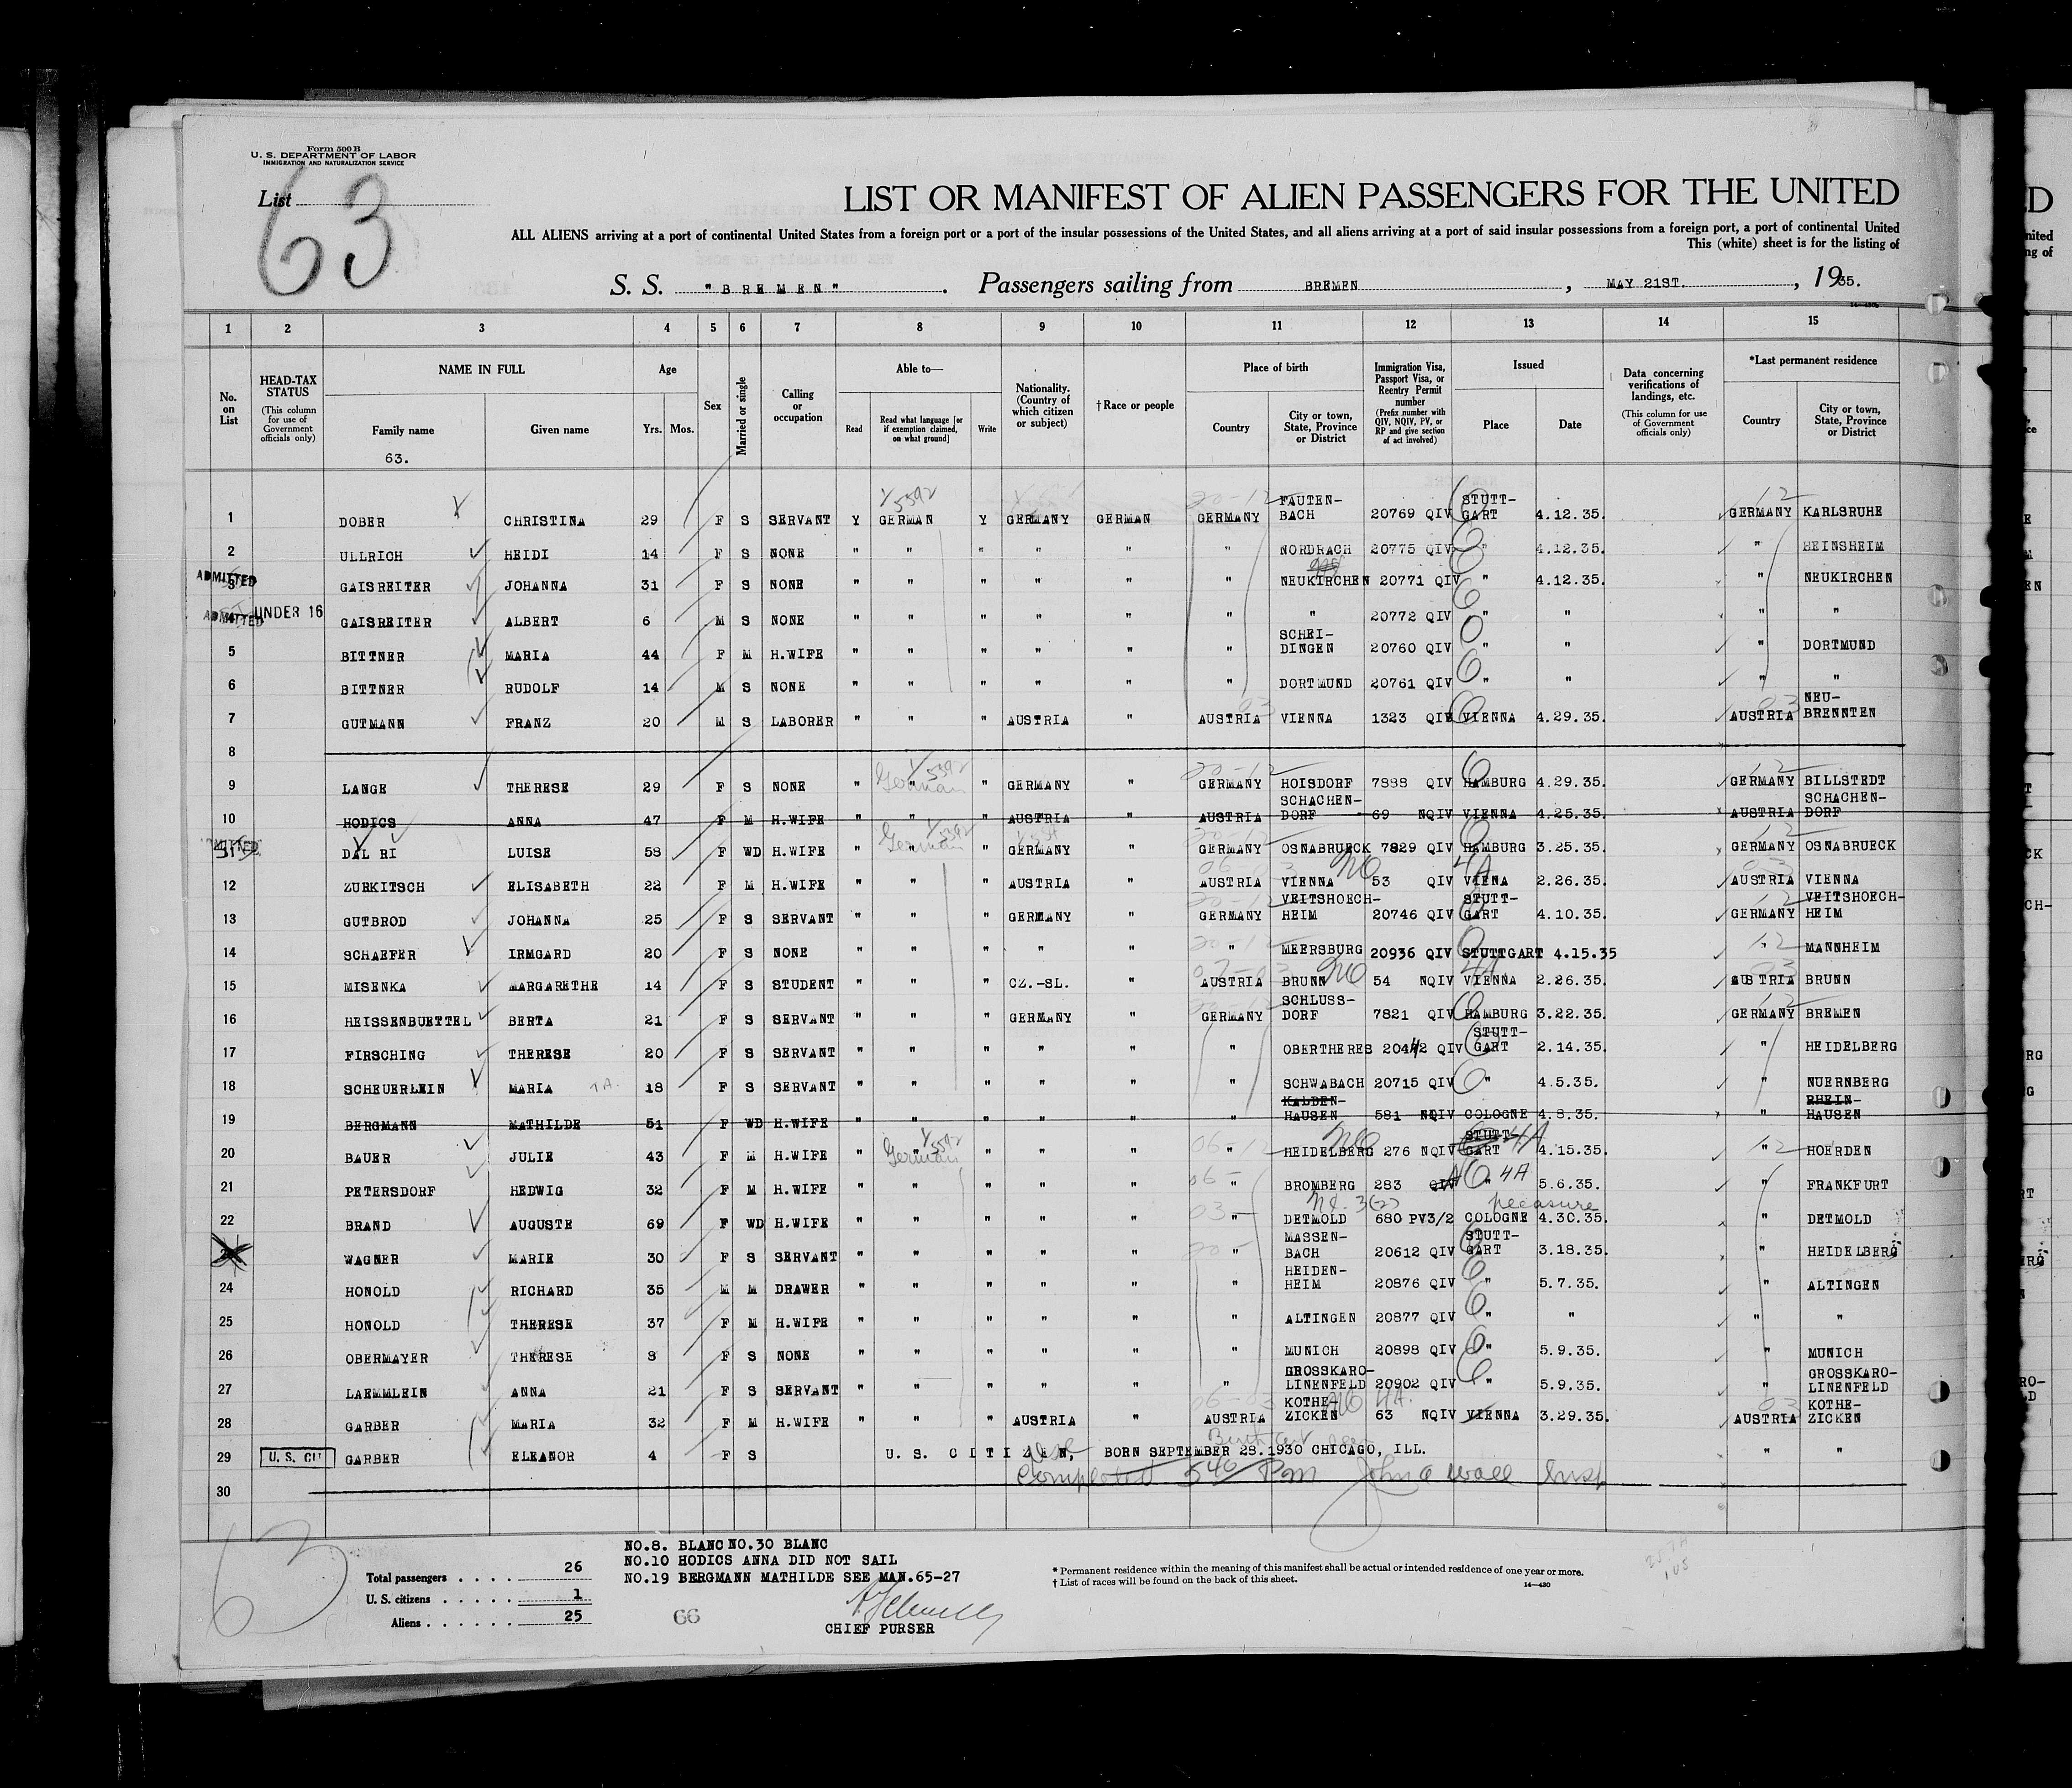 Form 500 B
U. S. DEPARTMENT OF LABOR
IMMIGRATION AND NATURALIZATION SERVICE
List
63
LIST OR MANIFEST OF ALIEN PASSENGERS FOR THE UNITED
ALL ALIENS arriving at a port of continental United States from a foreign port or a port of the insular possessions of the United States, and all aliens arriving at a port of said insular possessions from a foreign port, a port of continental United
This (white) sheet is for the listing of
S. S. "BREMEN". Passengers sailing from BREMEN, MAY 21ST., 1935.
1 2 3 4 5 6 7 8 9 10 11 12 13 14 15
No. on List HEAD-TAX STATUS (This column for use of Government officials only) NAME IN FULL Family name Given name Age Yrs. Mos. Sex Married or single Calling or occupation Able to— Read Read what language [or if exemption claimed, on what ground] Write Nationality. (Country of which citizen or subject) †Race or people Place of birth Country City or town, State, Province or District Immigration Visa, Passport Visa, or Reentry Permit number (Prefix number with QIV, NQIV, PV, or RP and give section of act involved) Issued Place Date Data concerning verifications of landings, etc. (This column for use of Government officials only) *Last permanent residence Country City or town, State, Province or District
63.
1 DOBER CHRISTINA 29 F S SERVANT Y GERMAN Y GERMANY GERMAN GERMANY FAUTEN-BACH 20769 QIV STUTT-GART 4.12.35. GERMANY KARLSRUHE
2 ULLRICH HEIDI 14 F S NONE " " " " " " NORDRACH 20775 QIV " 4.12.35. " HEINSHEIM
ADMITTED 3 GAISREITER JOHANNA 31 F S NONE " " " " " " NEUKIRCHEN 20771 QIV " 4.12.35. " NEUKIRCHEN
ADMITTED 4 UNDER 16 GAISREITER ALBERT 6 M S NONE " " " " " " " 20772 QIV " " " "
5 BITTNER MARIA 44 F M H.WIFE " " " " " " SCHEI-DINGEN 20760 QIV " " " DORTMUND
6 BITTNER RUDOLF 14 M S NONE " " " " " " DORTMUND 20761 QIV " " " "
7 GUTMANN FRANZ 20 M S LABORER " " " AUSTRIA " AUSTRIA VIENNA 1323 QIV VIENNA 4.29.35. AUSTRIA NEU-BRENNTEN
8
9 LANGE THERESE 29 F S NONE " " " GERMANY " GERMANY HOISDORF 7888 QIV HAMBURG 4.29.35. GERMANY BILLSTEDT
10 HODICS ANNA 47 F M H.WIFE " " " AUSTRIA " AUSTRIA SCHACHEN-DORF 69 NQIV VIENNA 4.25.35. AUSTRIA SCHACHEN-DORF
DAL RI LUISE 58 F WD H.WIFE " " " GERMANY " GERMANY OSNABRUECK 7829 QIV HAMBURG 3.25.35. GERMANY OSNABRUECK
12 ZURKITSCH ELISABETH 22 F M H.WIFE " " " AUSTRIA " AUSTRIA VIENNA 53 QIV VIENA 2.26.35. AUSTRIA VIENNA
13 GUTBROD JOHANNA 25 F S SERVANT " " " GERMANY " GERMANY VEITSHOECH-HEIM 20746 QIV STUTT-GART 4.10.35. GERMANY VEITSHOECH-HEIM
14 SCHAEFER IRMGARD 20 F S NONE " " " " " " MEERSBURG 20936 QIV STUTTGART 4.15.35 " MANNHEIM
15 MISENKA MARGARETHE 14 F S STUDENT " " " CZ.-SL. " AUSTRIA BRUNN 54 NQIV VIENNA 2.26.35. AUSTRIA BRUNN
16 HEISSENBUETTEL BERTA 21 F S SERVANT " " " GERMANY " GERMANY SCHLUSS-DORF 7821 QIV HAMBURG 3.22.35. GERMANY BREMEN
17 FIRSCHING THERESE 20 F S SERVANT " " " " " " OBERTHERES 20442 QIV STUTT-GART 2.14.35. " HEIDELBERG
18 SCHEUERLEIN MARIA 18 F S SERVANT " " " " " " SCHWABACH 20715 QIV " 4.5.35. " NUERNBERG
19 BERGMANN MATHILDE 51 F WD H.WIFE " " " " " " KALDEN-HAUSEN 581 NQIV COLOGNE 4.8.35. " RHEIN-HAUSEN
20 BAUER JULIE 43 F M H.WIFE " " " " " " HEIDELBERG 276 NQIV STUTT-GART 4A 4.15.35. " HOERDEN
21 PETERSDORF HEDWIG 32 F M H.WIFE " " " " " " BROMBERG 283 QIV " 4A 5.6.35. " FRANKFURT
22 BRAND AUGUSTE 69 F WD H.WIFE " " " " " " DETMOLD 680 PV3/2 COLOGNE pleasure 4.30.35. " DETMOLD
WAGNER MARIE 30 F S SERVANT " " " " " " MASSEN-BACH 20612 QIV STUTT-GART 3.18.35. " HEIDELBERG
24 HONOLD RICHARD 35 M M DRAWER " " " " " " HEIDEN-HEIM 20876 QIV " 5.7.35. " ALTINGEN
25 HONOLD THERESE 37 F M H.WIFE " " " " " " ALTINGEN 20877 QIV " " " "
26 OBERMAYER THERESE 8 F S NONE " " " " " " MUNICH 20898 QIV " 5.9.35. " MUNICH
27 LAEMMLEIN ANNA 21 F S SERVANT " " " " " " GROSSKARO-LINENFELD 20902 QIV " 5.9.35. " GROSSKARO-LINENFELD
28 GARBER MARIA 32 F M H.WIFE " " " AUSTRIA " AUSTRIA KOTHE-ZICKEN 63 NQIV VIENNA 3.29.35. AUSTRIA KOTHE-ZICKEN
29 U.S. CIT GARBER ELEANOR 4 F S U. S. CITIZEN, BORN SEPTEMBER 28.1930 CHICAGO, ILL. " "
Completed 5 40 Pm John A Wall Insp
30
Total passengers . . . . 26
U. S. citizens . . . . . 1
Aliens . . . . . . 25
NO.8. BLANC NO.30 BLANC
NO.10 HODICS ANNA DID NOT SAIL
NO.19 BERGMANN MATHILDE SEE MAN.65-27
66
CHIEF PURSER
* Permanent residence within the meaning of this manifest shall be actual or intended residence of one year or more.
† List of races will be found on the back of this sheet.
14—430
63